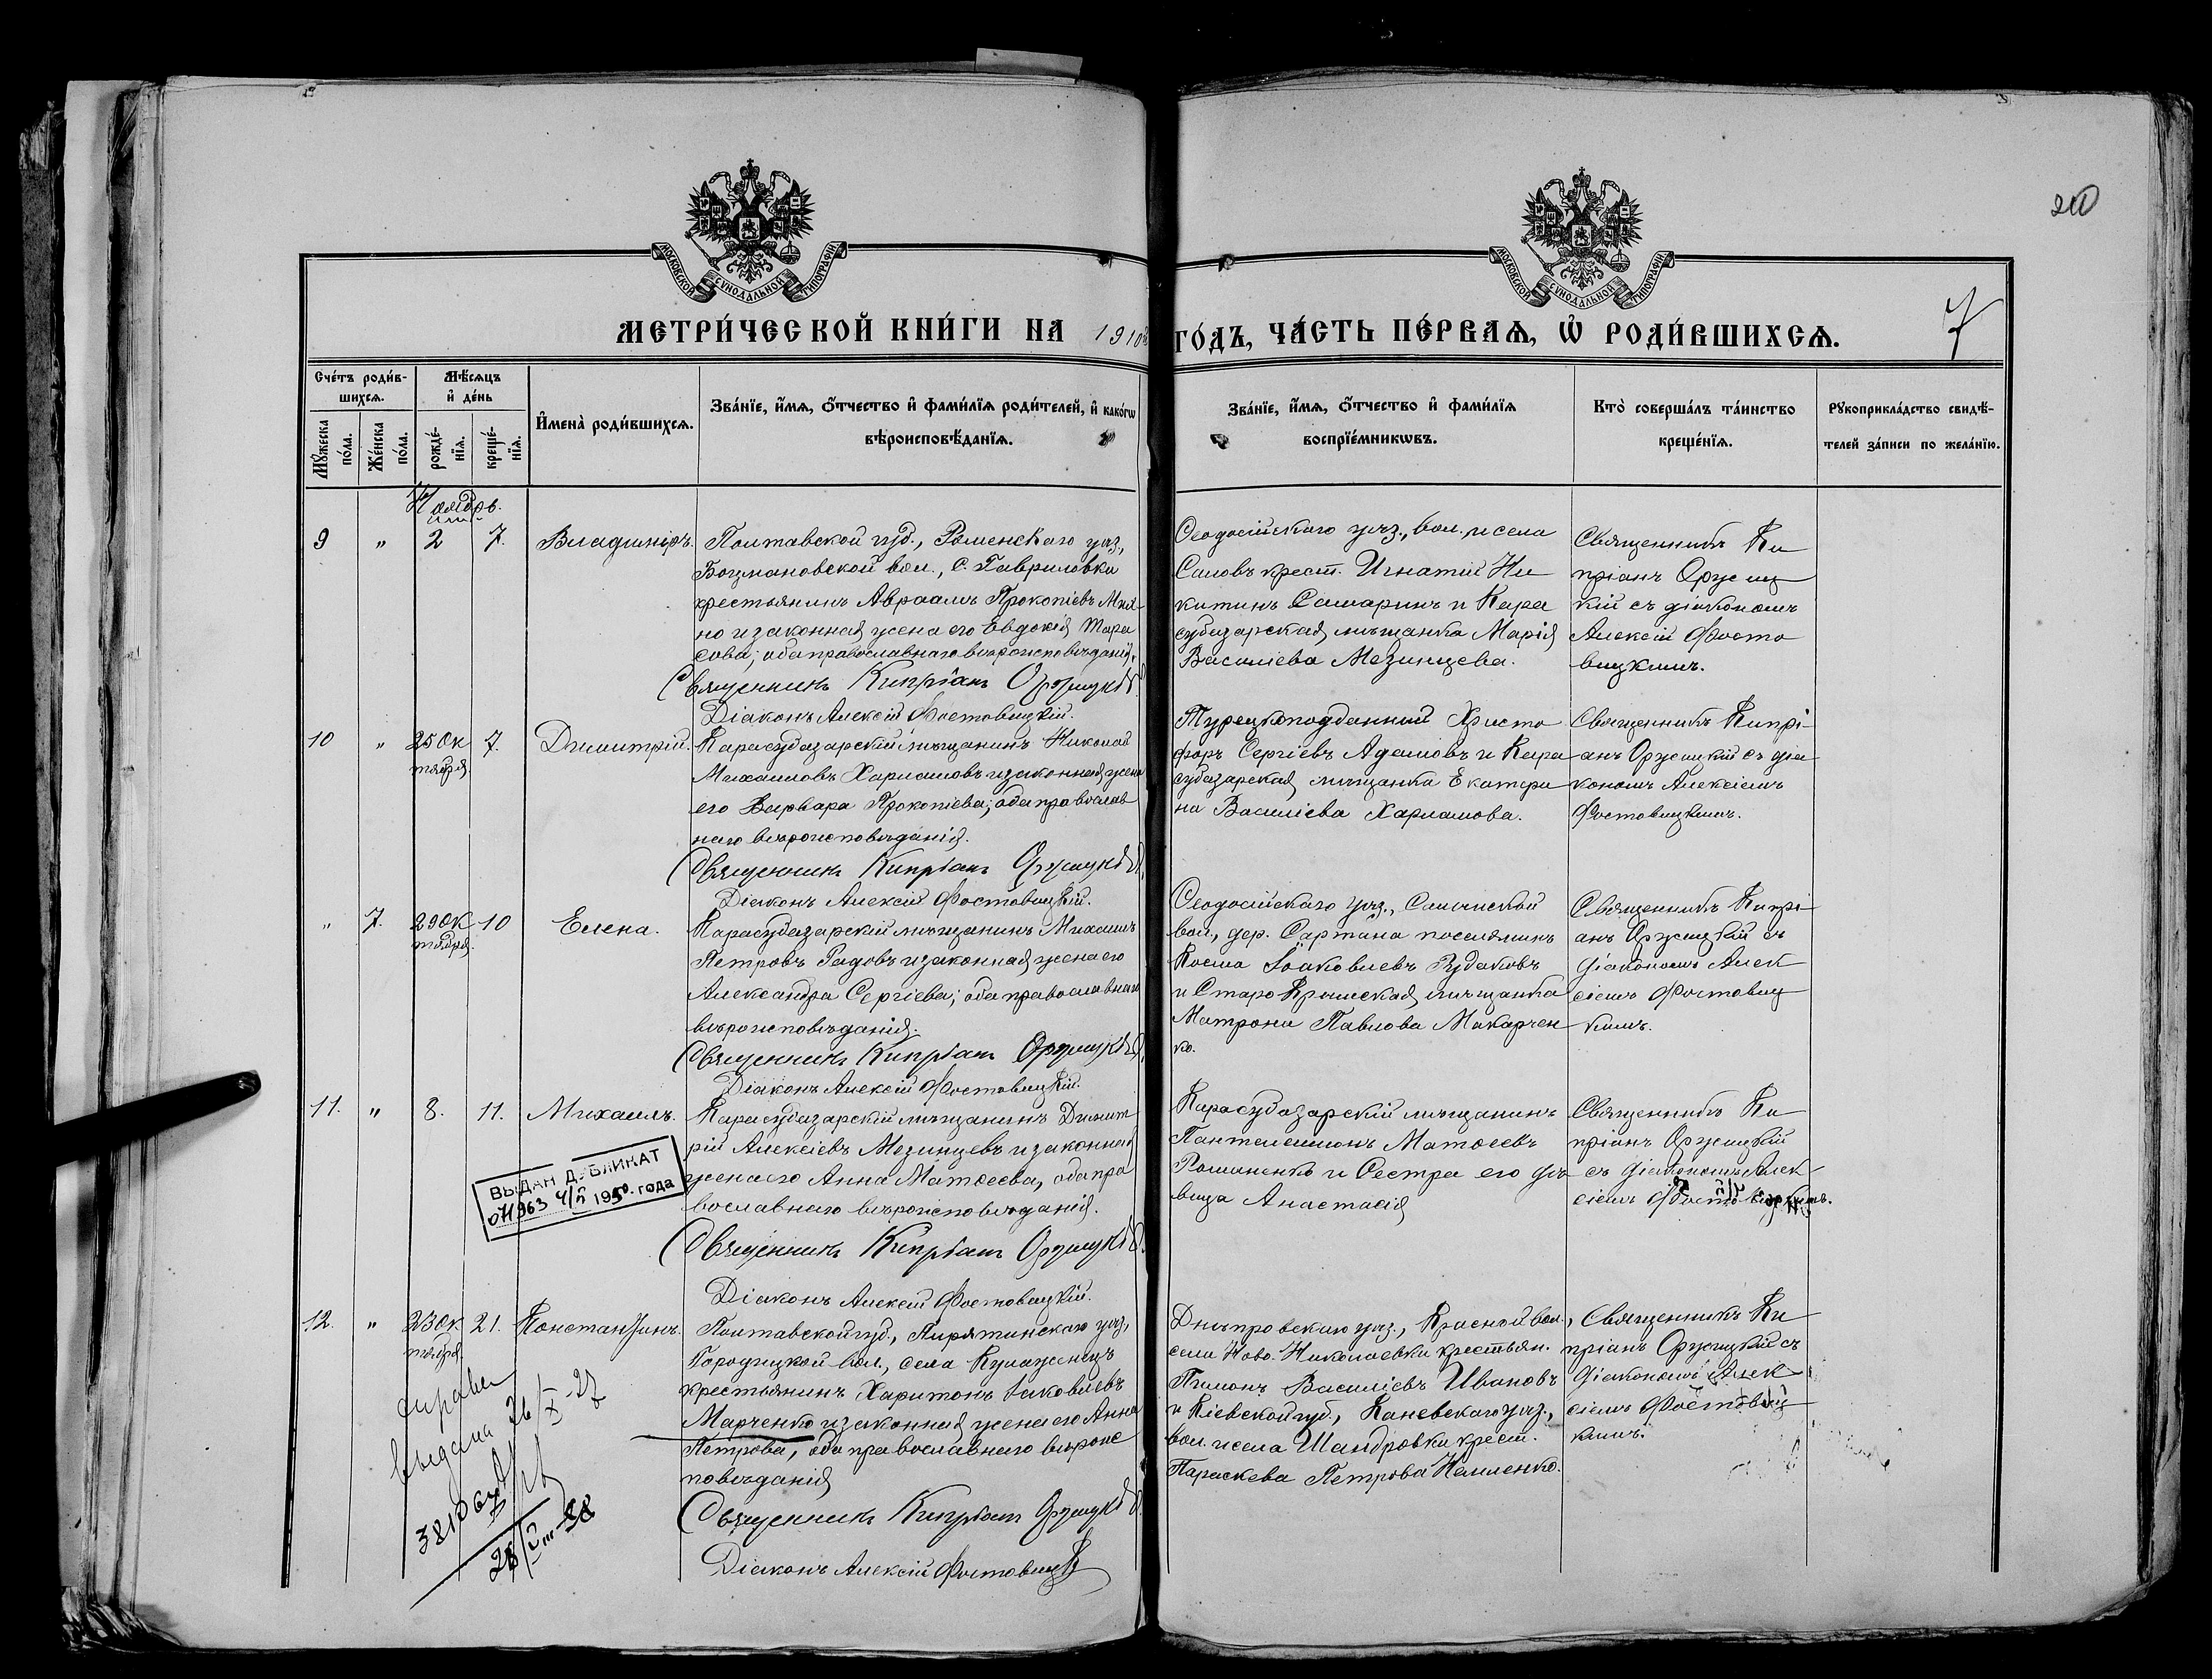 20
МОСКОВСКОЙ СѴНОДАЛЬНОЙ ТИПОГРАФІИ
МОСКОВСКОЙ СѴНОДАЛЬНОЙ ТИПОГРАФІИ
МЕТРИ́ЧЕСКОЙ КНИ́ГИ НА 1910й ГО́ДЪ, ЧА́СТЬ ПЕ́РВАѦ, Ѡ РОДИ́ВШИХСѦ.
7
Сче́тъ роди́в-
шихсѧ.
Мꙋ́жеска
по́ла.
Же́нска
по́ла.
Мѣ́сѧцъ
и҆ де́нь
рожде́-
нїѧ.
креще́-
нїѧ.
И҆мена̀ роди́вшихсѧ.
Зва́нїе, и҆́мѧ, ѻ҆́тчество и҆ фами́лїѧ роди́телей, и҆ како́гѡ
вѣроисповѣ́данїѧ.
Зва́нїе, и҆́мѧ, ѻ҆́тчество и҆ фами́лїѧ
воспрїе́мникѡвъ.
Кто̀ соверша́лъ та́инство
креще́нїѧ.
Рꙋкоприкла́дство свидѣ́-
телей за́писи по жела́нїю.
Ноябрь.
9 " 2 7. Владиміръ.
Полтавской губ., Роменскаго уѣз,
Бацмановской вол., с. Гавриловки
крестьянинъ Авраамъ Прокопіевъ Мих-
но и законная жена его Евдокія Тара
сова; оба православнаго вѣроисповѣданія.
Священникъ Кипріанъ Оружицкій.
Діаконъ Алексій Фостовицкій.
Ѳеодосійскаго уѣз., вол. и села
Саловъ крест. Игнатій Ни
китинъ Самаринъ и Кара
субазарская мѣщанка Марія
Василіева Мезинцева.
Священникъ Ки
пріанъ Оружиц
кій съ діакономъ
Алексій Фосто
вицкимъ.
10 " 25 Ок
тября. 7. Димитрій.
Карасубазарскій мѣщанинъ Николай
Михаиловъ Харламовъ и законная жена
его Варвара Прокопіева; оба православ
наго вѣроисповѣданія.
Священникъ Кипріанъ Оружицкій.
Діаконъ Алексій Фостовицкій.
Турецкоподданный Христо
форъ Сергіевъ Адамовъ и Кара
субазарская мѣщанка Екатери
на Василіева Харламова.
Священникъ Кипрі-
анъ Оружицкій съ діа
кономъ Алексіемъ
Фостовицкимъ.
" 7. 29 Ок
тября. 10 Елена.
Карасубазарскій мѣщанинъ Михаилъ
Петровъ Гадовъ и законная жена его
Александра Сергіева; оба православнаго
вѣроисповѣданія.
Священникъ Кипріанъ Оружицкій.
Діаконъ Алексій Фостовицкій.
Ѳеодосійскаго уѣз., Салынской
вол., дер. Сартана поселянинъ
Косма Іаковлевъ Рудаковъ
и Старо Крымская мѣщанка
Матрона Павлова Макарчен
ко.
Священникъ Кипрі-
анъ Оружицкій съ
діакономъ Алек
сіемъ Фостовиц
кимъ.
11. " 8. 11. Михаилъ.
Карасубазарскій мѣщанинъ Димит
рій Алексіевъ Мезинцевъ и законная
жена его Анна Матѳеева, оба пра
вославнаго вѣроисповѣданія.
Священникъ Кипріанъ Оружицкій.
Діаконъ Алексій Фостовицкій.
ВЫДАН ДУБЛИКАТ
1950. года
Карасубазарскій мѣщанинъ
Пантелеимонъ Матѳеевъ
Романенко и Сестра его дѣ
вица Анастасія
Священникъ Ки
пріанъ Оружицкій
съ діакономъ Алек-
сіемъ Фостовицкимъ.
12. " 23 Ок
тября. 21. Константинъ.
Полтавской губ., Пирятинскаго уѣз,
Городицкой вол., села Кулажинецъ
крестьянинъ Харитонъ Іаковлевъ
Марченко и законная жена его Анна
Петрова, оба православнаго вѣроис
повѣданія
Священникъ Кипріанъ Оружицкій.
Діаконъ Алексій Фостовицкій
Днѣпровскаго уѣз., Красной вол.,
села Ново-Николаевки крестьян.
Пимонъ Василіевъ Ивановъ
и Кіевской губ., Каневскаго уѣз.,
вол. и села Шандровки крест.
Параскева Петрова Немленко.
Священникъ Ки
пріанъ Оружицкій съ
діакономъ Алек
сіемъ Фостовиц
кимъ.
справка
выдана 26/X-27